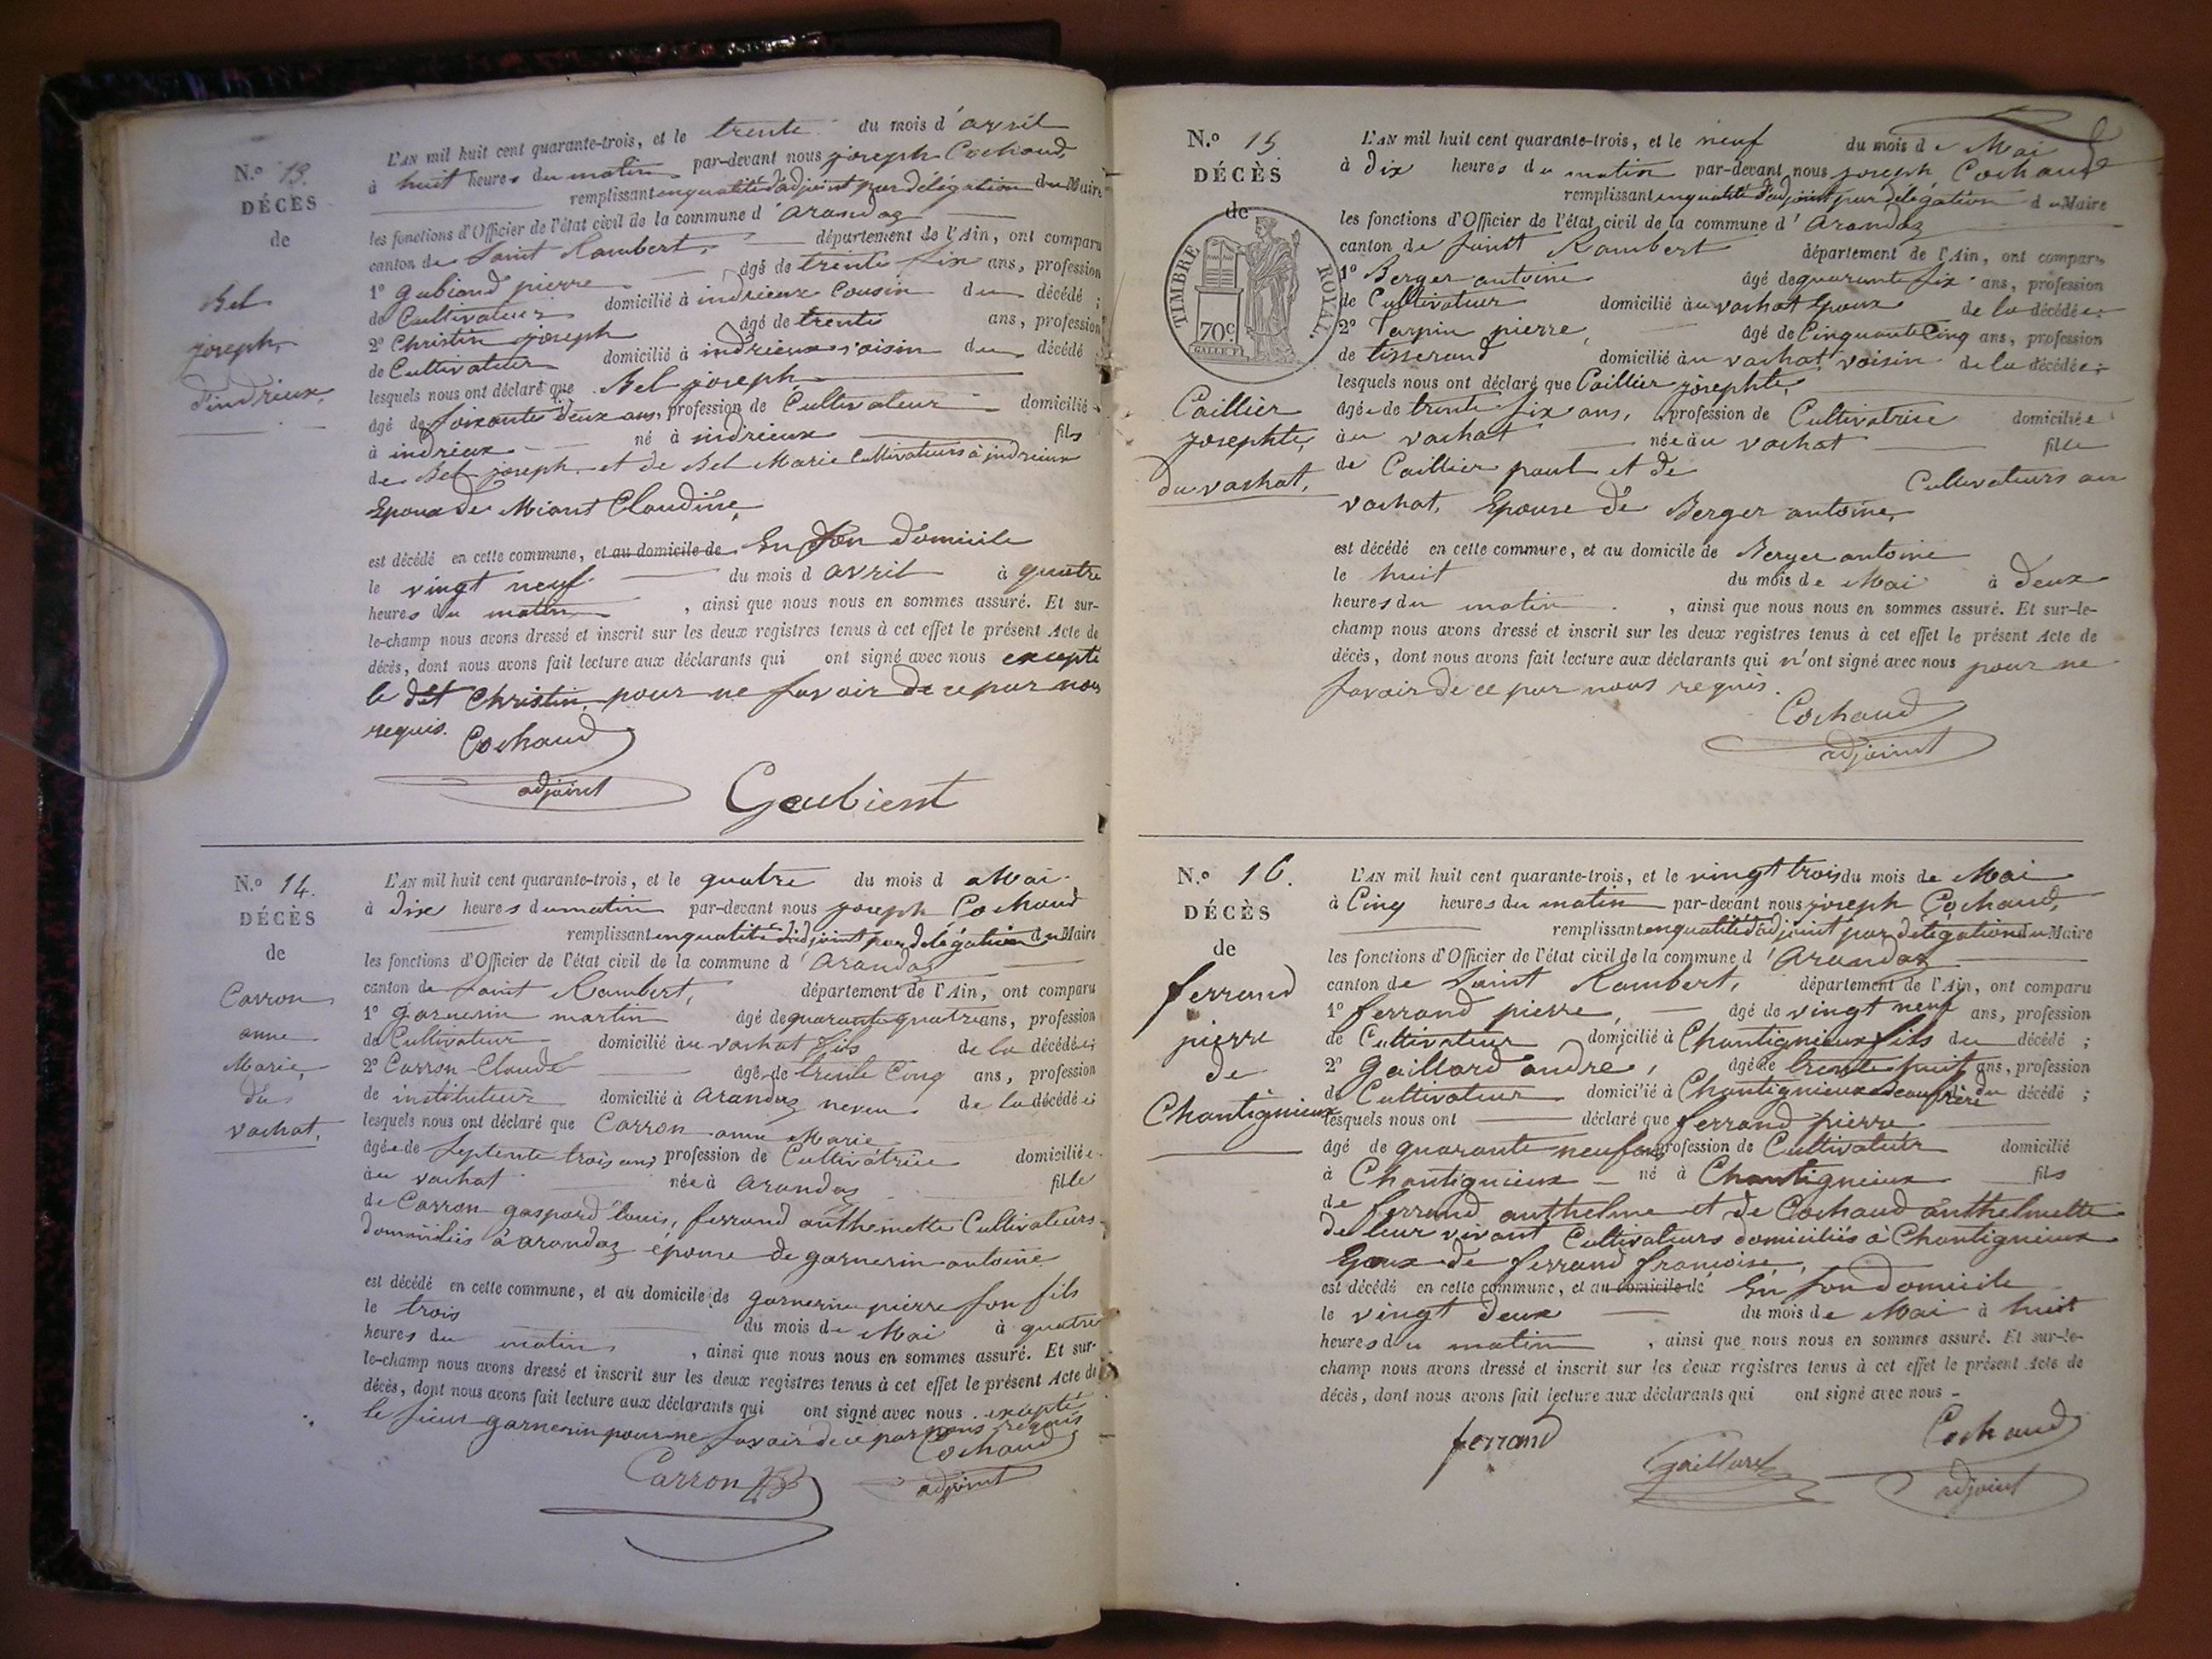 N.º 13.
DÉCÈS
de
Bel
joseph,
d'indrieux,
L'AN mil huit cent quarante-trois, et le trente du mois d'avril
à huit heures du matin par-devant nous joseph Cochaud,
remplissant en qualité d'adjoint par délégation du Maire
les fonctions d'Officier de l'état civil de la commune d'Arandaz
canton de Saint Rambert, département de l'Ain, ont comparu
1º gubiand pierre âgé de trente six ans, profession
de Cultivateur domicilié à indrieux Cousin du décédé ;
2º Christin joseph âgé de trente ans, profession
de Cultivateur domicilié à indrieux voisin du décédé ;
lesquels nous ont déclaré que Bel joseph,
âgé de soixante deux ans, profession de Cultivateur domicilié
à indrieux né à indrieux fils
de Bel joseph, et de Bel Marie Cultivateurs à indrieux
Epoux de Miant Claudine,
est décédé en cette commune, et au domicile de En son domicile
le vingt neuf du mois d avril à quatre
heures du matin, ainsi que nous nous en sommes assuré. Et sur-
le-champ nous avons dressé et inscrit sur les deux registres tenus à cet effet le présent Acte de
décès, dont nous avons fait lecture aux déclarants qui ont signé avec nous excepté
le dit Christin, pour ne savoir de ce par nous
requis.
Cochaud
adjoint
Gaubient
N.º 14.
DÉCÈS
de
Carron
anne
Marie,
du
vachat,
L'AN mil huit cent quarante-trois, et le quatre du mois d Mai
à Dix heures du matin par-devant nous joseph Cochaud
remplissant en qualité d'adjoint par délégation du Maire
les fonctions d'Officier de l'état civil de la commune d'Arandaz
canton de Saint Rambert, département de l'Ain, ont comparu
1º garnerin martin âgé de quarante quatre ans, profession
de Cultivateur domicilié au vachat fils de la décédée ;
2º Carron Claude âgé de trente Cinq ans, profession
de instituteur domicilié à Arandaz neveu de la décédée ;
lesquels nous ont déclaré que Carron anne Marie
âgée de septente trois ans profession de Cultivatrice domiciliée
au vachat née à Arandaz fille
de Carron gaspard louis, ferrand anthemette Cultivateurs
domiciliés à arandaz épouse de garnerin antoine
est décédé en cette commune, et au domicile de garnerin pierre son fils
le trois du mois de Mai à quatre
heures du matin, ainsi que nous nous en sommes assuré. Et sur-
le-champ nous avons dressé et inscrit sur les deux registres tenus à cet effet le présent Acte de
décès, dont nous avons fait lecture aux déclarants qui ont signé avec nous excepté
le sieur garnerin pour ne savoir de ce par nous requis
Cochaud
Carron
adjoint
N.º 15.
DÉCÈS
de
TIMBRE ROYAL.
70c
Caillier
josephte,
du vachat,
L'AN mil huit cent quarante-trois, et le neuf du mois de Mai
à Dix heures du matin par-devant nous joseph Cochaud
remplissant en qualité d'adjoint par délégation du Maire
les fonctions d'Officier de l'état civil de la commune d'Arandaz
canton de Saint Rambert département de l'Ain, ont comparu
1º Berger antoine âgé de quarante six ans, profession
de Cultivateur domicilié au vachat Epoux de la décédée ;
2º Tarpin pierre, âgé de Cinquante Cinq ans, profession
de tisserand domicilié au vachat voisin de la décédée ;
lesquels nous ont déclaré que Caillier josephte,
âgée de trente six ans, profession de Cultivatrice domiciliée
au vachat née au vachat fille
de Caillier paul et de Cultivateurs au
vachat, Epouse de Berger antoine,
est décédé en cette commune, et au domicile de Berger antoine
le huit du mois de Mai à deux
heures du matin, ainsi que nous nous en sommes assuré. Et sur-le-
champ nous avons dressé et inscrit sur les deux registres tenus à cet effet le présent Acte de
décès, dont nous avons fait lecture aux déclarants qui n'ont signé avec nous pour ne
savoir de ce par nous requis.
Cochaud
adjoint
N.º 16.
DÉCÈS
de
ferrand
pierre
de
Chantignieux
L'AN mil huit cent quarante-trois, et le vingt trois du mois de Mai
à Cinq heures du matin par-devant nous joseph Cochaud,
remplissant en qualité d'adjoint par délégation du Maire
les fonctions d'Officier de l'état civil de la commune d'Arandaz
canton de Saint Rambert, département de l'Ain, ont comparu
1º ferrand pierre, âgé de vingt neuf ans, profession
de Cultivateur domicilié à Chantignieux fils du décédé ;
2º gaillard andré, âgé de trente huit ans, profession
de Cultivateur domicilié à Chantignieux Beaufrère du décédé ;
lesquels nous ont déclaré que ferrand pierre
âgé de quarante neuf ans profession de Cultivateur domicilié
à Chantignieux né à Chantignieux fils
de ferrand anthelme et de Cochaud anthelmette
de leur vivant Cultivateurs domiciliés à Chantignieux
Epoux de ferrand francoise,
est décédé en cette commune, et au domicile de En son domicile
le vingt deux du mois de Mai à huit
heures du matin, ainsi que nous nous en sommes assuré. Et sur-le-
champ nous avons dressé et inscrit sur les deux registres tenus à cet effet le présent Acte de
décès, dont nous avons fait lecture aux déclarants qui ont signé avec nous
ferrand
Gaillard
Cochaud
adjoint